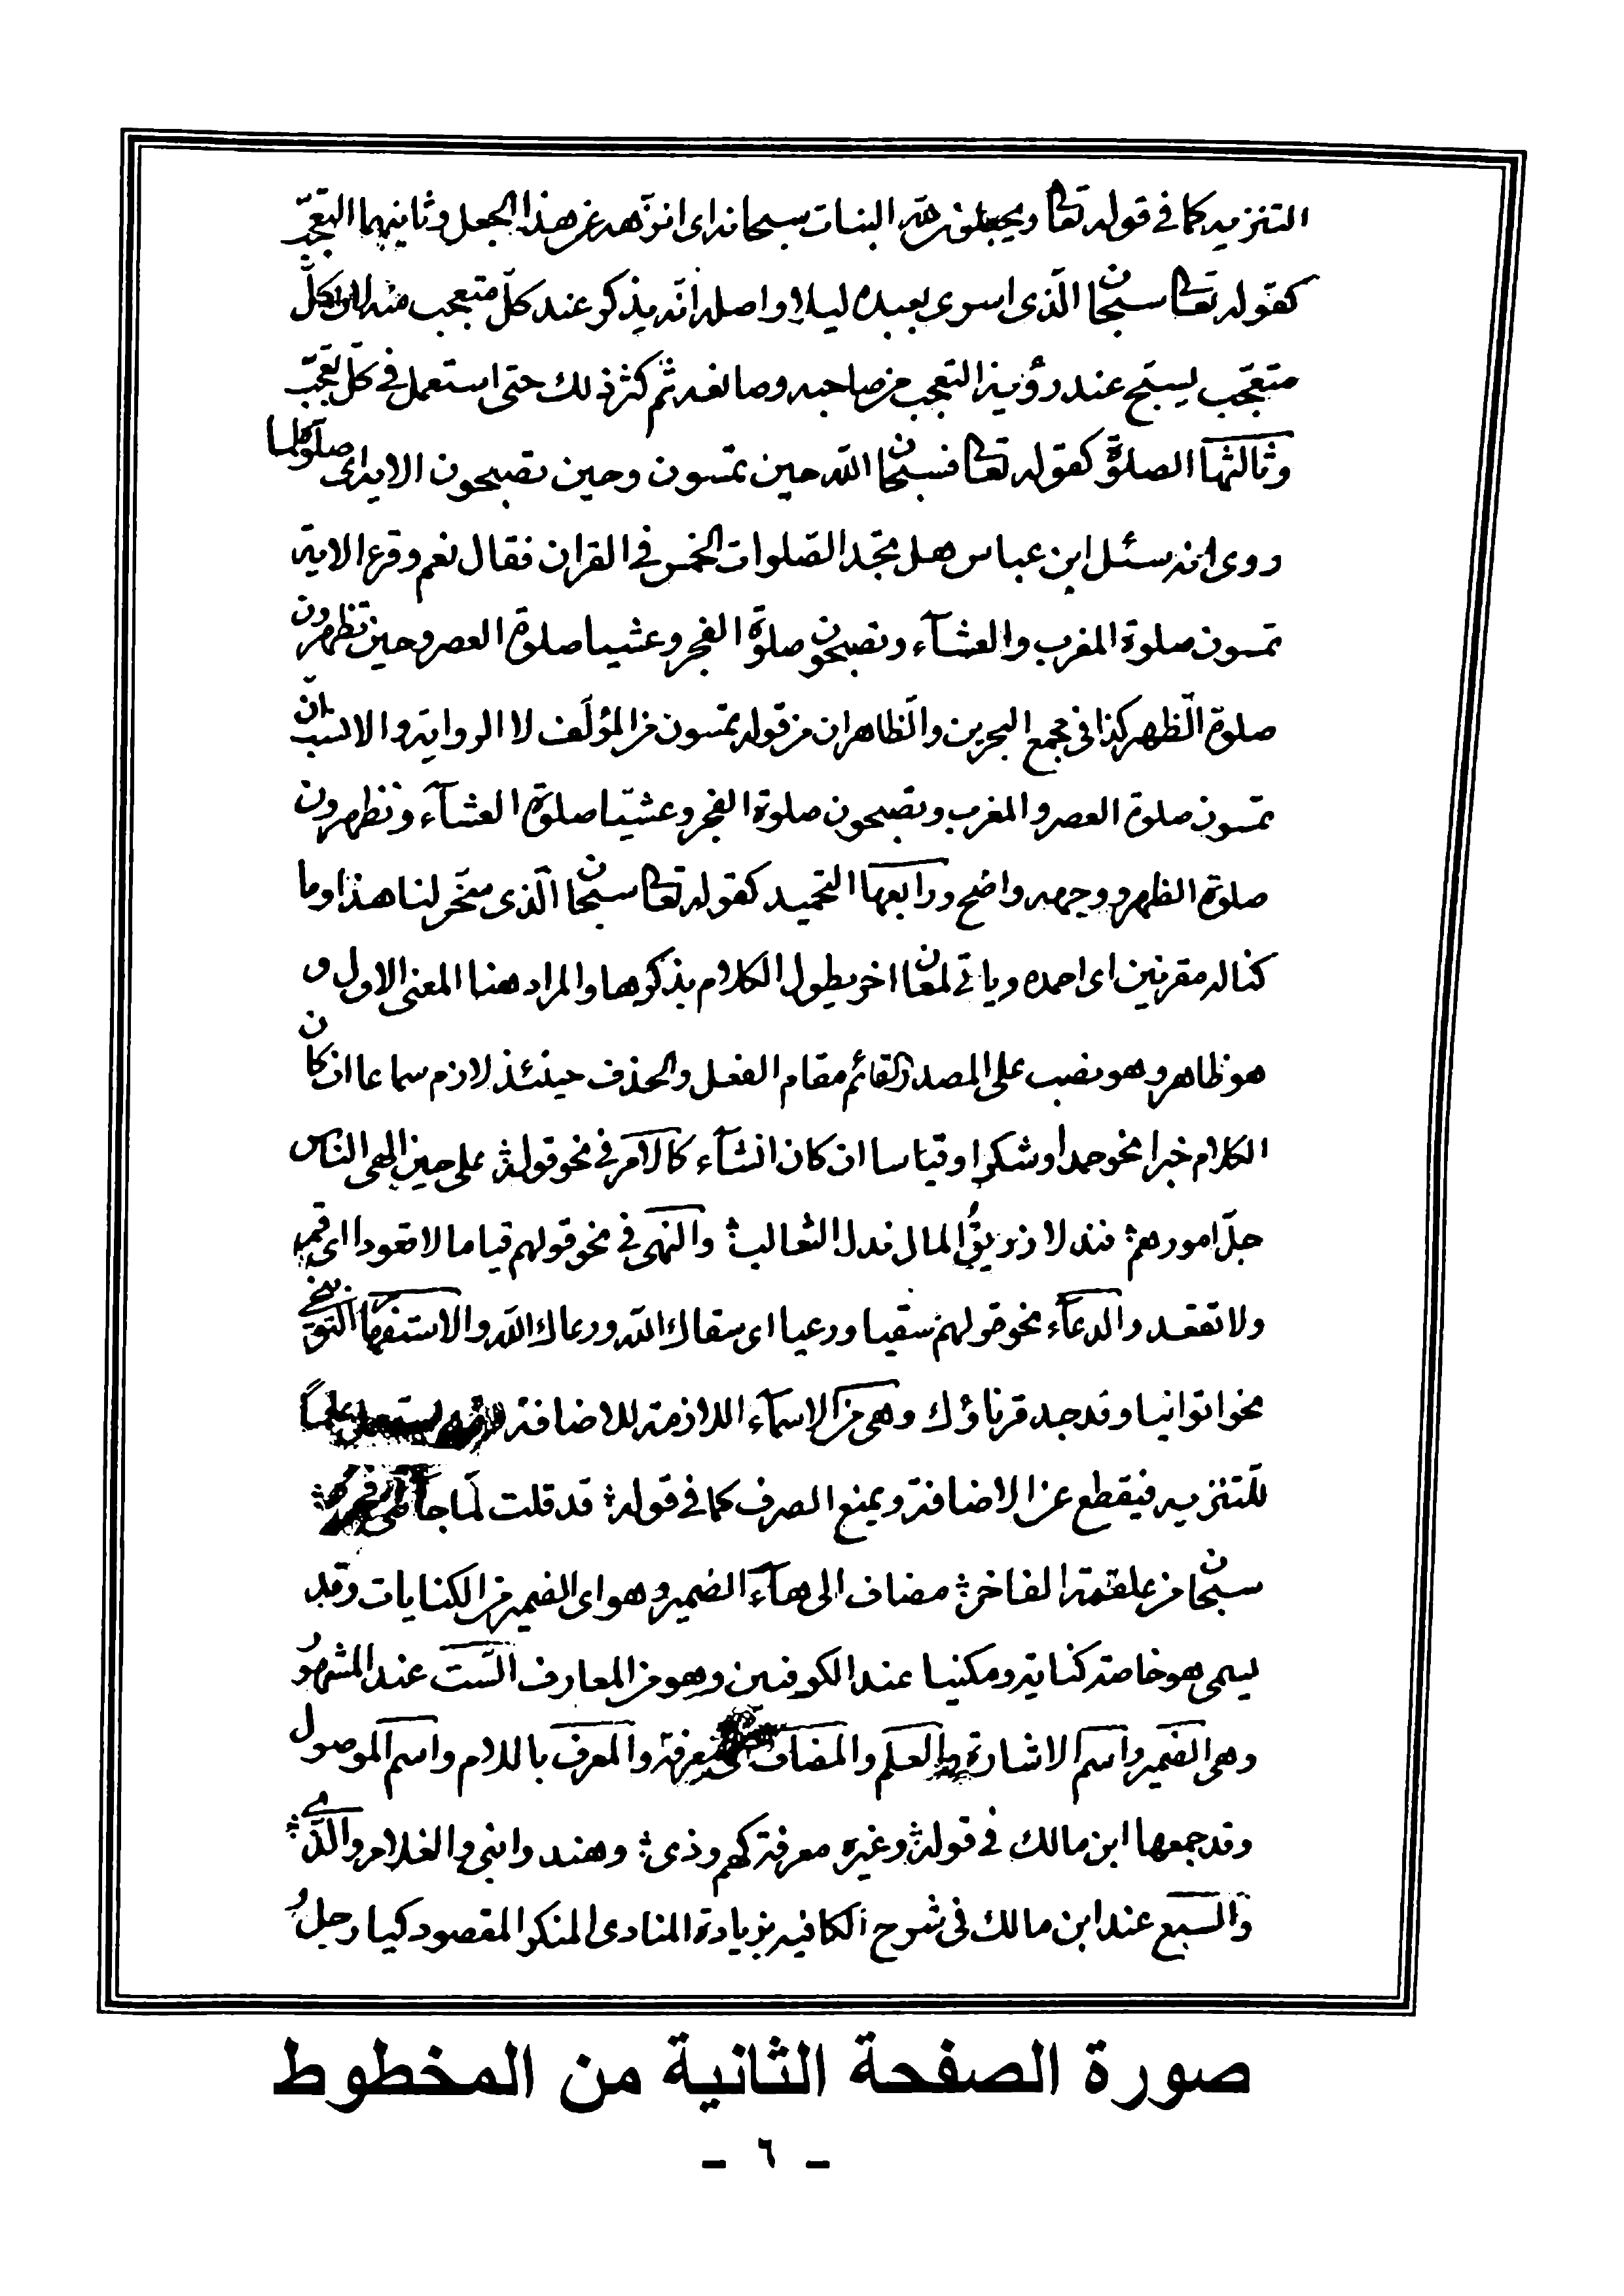 التنزيه كما في قوله تعالى ويجعلون لله البنات سبحانه اى انزهه عن هذا الجعل وثانيهما التعجّب
كقوله تعالى سبحان الّذى اسرى بعبده ليلا واصله انّه يذكر عند كلّ متعجب منه لان كلّ
متعجّب يسبّح عند رؤية التعجب من صاحبه وصانعه ثم كثر ذلك حتى استعمل في كلّ تعجّب
وثالثها الصلوة كقوله تعالى فسبحان الله حين تمسون وحين تصبحون الاية اى صلوة لما
روى انه سئل ابن عباس هل تجد الصّلوات الخمس في القران فقال نعم وقرء الاية
تمسون صلوة المغرب والعشآء وتصبحون صلوة الفجر وعشيا صلوة العصر وحين تظهرون
صلوة الظّهر كذا فى مجمع البحرين والظاهر ان من قوله تمسون من المؤلّف لا الرواية والانسب انّ
تمسون صلوة العصر والمغرب وتصبحون صلوة الفجر وعشيّا صلوة العشآء وتظهرون
صلوة الظهر ووجهه واضح ورابعها التحميد كقوله تعالى سبحان الّذى سخّر لنا هذا وما
كنا له مقرنين اى احمده وياتى لمعان اخر يطول الكلام بذكرها والمراد هنا المعنى الاول و
هو ظاهر وهو نصب على المصدر القائم مقام الفعل والحذف حينئذ لازم سماعا ان كان
الكلام خبرا نحو حمدا وشكرا وقياسا ان كان انشآء كالامر في نحو قوله على حين الهى الناس
جلّ امورهم فندلا زريقُ المال ندل الثعالب والنهى في نحو قولهم قياما لا قعودا اى قم
ولا تقعد والدعآء نحو قولهم سقيا ورعيا اى سقاك الله ورعاك الله والاستفهام التوبيخى
نحو اتوانيا وقد جد قرناؤك وهى من الاسمآء اللازمة للاضافة وقد يستعمل علماً
للتنزيه فيقطع عن الاضافة ويمنع الصرف كما في قوله قد قلت لمّا جآئنى فخره
سبحان من علقمة الفاخر مضاف الى هآء الضمير وهو اى الضمير من الكنايات وقد
يسمى هو خاصة كناية ومكنيا عند الكوفين وهو من المعارف السّت عند المشهور
وهى الضمير واسم الاشارة والعلم والمضاف الى معرفة والمعرف باللام واسم الموصول
وقد جمعها ابن مالك في قوله وغيره معرفة كهم وذى وهند وابنى والغلام والّذي
والسبع عند ابن مالك فى شرح الكافيه بزيادة المنادى المنكر المقصود كيا رجلُ
صورة الصفحة الثانية من المخطوط
- ٦ -